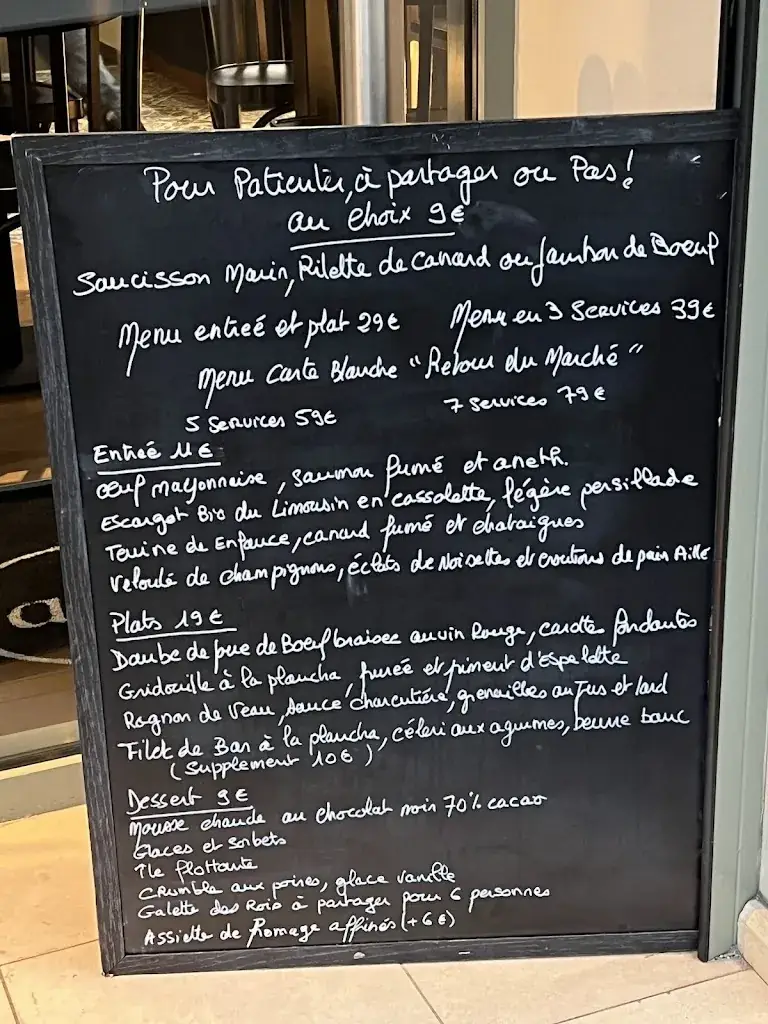 Pour Patienter, à partager ou Pas!
au choix 9€
Saucisson Marin, Rilette de Canard ou Jambon de Boeuf
Menu entreé et plat 29€
Menu en 3 Services 39€
Menu Carte Blanche "Retour du Marché"
5 Services 59€
7 Services 79€
Entreé 11€
œuf mayonnaise, saumon fumé et aneth.
Escargot Bio du Limousin en cassolette, légère persillade
Terrine de Enfance, canard fumé et chataignes
Velouté de champignons, éclats de Noisettes et croutons de pain Aillé
Plats 19€
Daube de joue de Boeuf braisee au vin Rouge, carottes fondantes
Gridouille à la plancha, purée et piment d'espelette
Rognon de Veau, sauce charcutière, grenailles au jus et lard
Filet de Bar à la plancha, céleri aux agrumes, beurre blanc
(Supplement 10€)
Dessert 9€
Mousse chaude au chocolat noir 70% cacao
Glaces et sorbets
île flottante
Crumble aux poires, glace vanille
Galette des Rois à partager pour 6 personnes
Assiette de Fromage affinés (+6€)
a